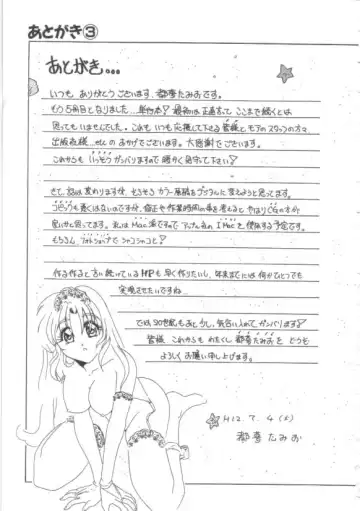 あとがき③
あとがき...
いつも ありがとうございます、都夢たみおです。
もう5冊目となりました…単行本! 最初は正直言って ここまで続くとは
思ってもいませんでした。これも いつも応援して下さる皆様と モアのスタッフの方々
出版社様…etc のおかげでございます。大感謝でございます。
これからも いっそう ガンバリますので 暖かく 見守って下さい!
さて、話は変わりますが、もうそろそろ カラー原稿をデジタルに変えようと思ってます。
コピックも悪くはないのですが、修正や作業時間の事を考えると やはりCGの方が
良いかと思ってます。私はMac派ですので アシナんかの I Macを使用する予定です。
もちろん、フォトショップで シャコシャコと!
作る作ると言い続けているHPも早く作りたいし、年末までには 何か1つでも
実現させたいですね。
では 20世紀もあと少し、気合い入れて ガンバリます!
皆様 これからも わたくし 都夢たみおを どうぞ
よろしく お願い申し上げます。
H12.7.4(火)
都夢たみお